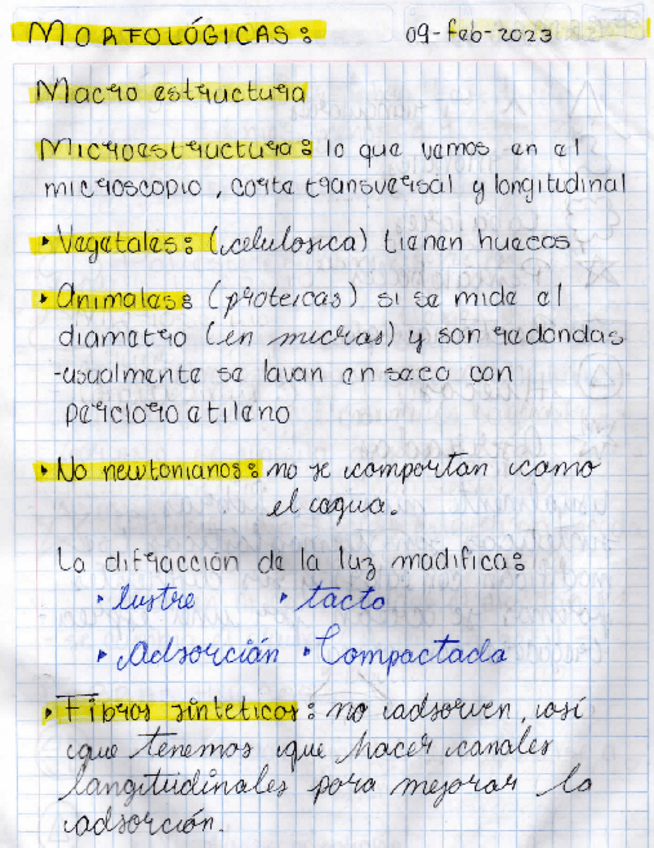 MORFOLÓGICAS: 09-feb-2023
Macro estructura
Microestructura: lo que vemos en el
microscopio, corte transversal y longitudinal
‣ Vegetales: (celulosica) tienen huecos
‣ Animales: (proteicas) si se mide el
diametro (en micras) y son redondas
-usualmente se lavan en seco con
percloro etileno
‣ No newtonianos: no se comportan como
el agua.
La difracción de la luz modifica:
‣ lustre ‣ tacto
‣ Adsorción ‣ Compactada
‣ Fibras sinteticas: no adsorven, así
que tenemos que hacer canales
longitudinales para mejorar la
adsorción.